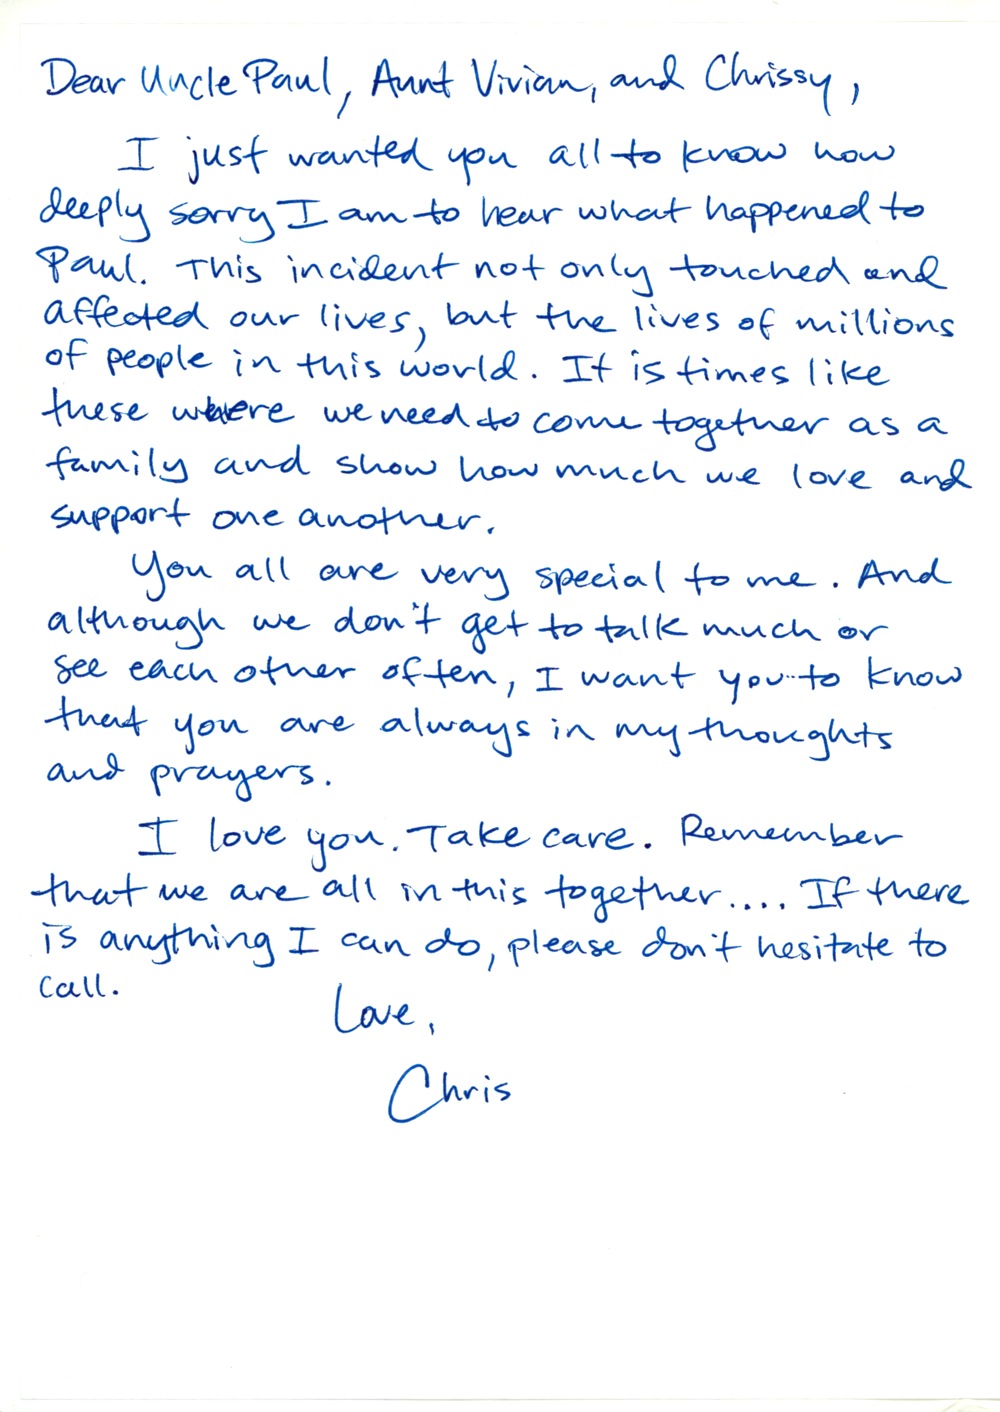 Dear Uncle Paul, Aunt Vivian, and Chrissy,
I just wanted you all to know how
deeply sorry I am to hear what happened to
Paul. This incident not only touched and
affected our lives, but the lives of millions
of people in this world. It is times like
these where we need to come together as a
family and show how much we love and
support one another.
You all are very special to me. And
although we don't get to talk much or
see each other often, I want you to know
that you are always in my thoughts
and prayers.
I love you. Take care. Remember
that we are all in this together.... If there
is anything I can do, please don't hesitate to
call.
Love,
Chris